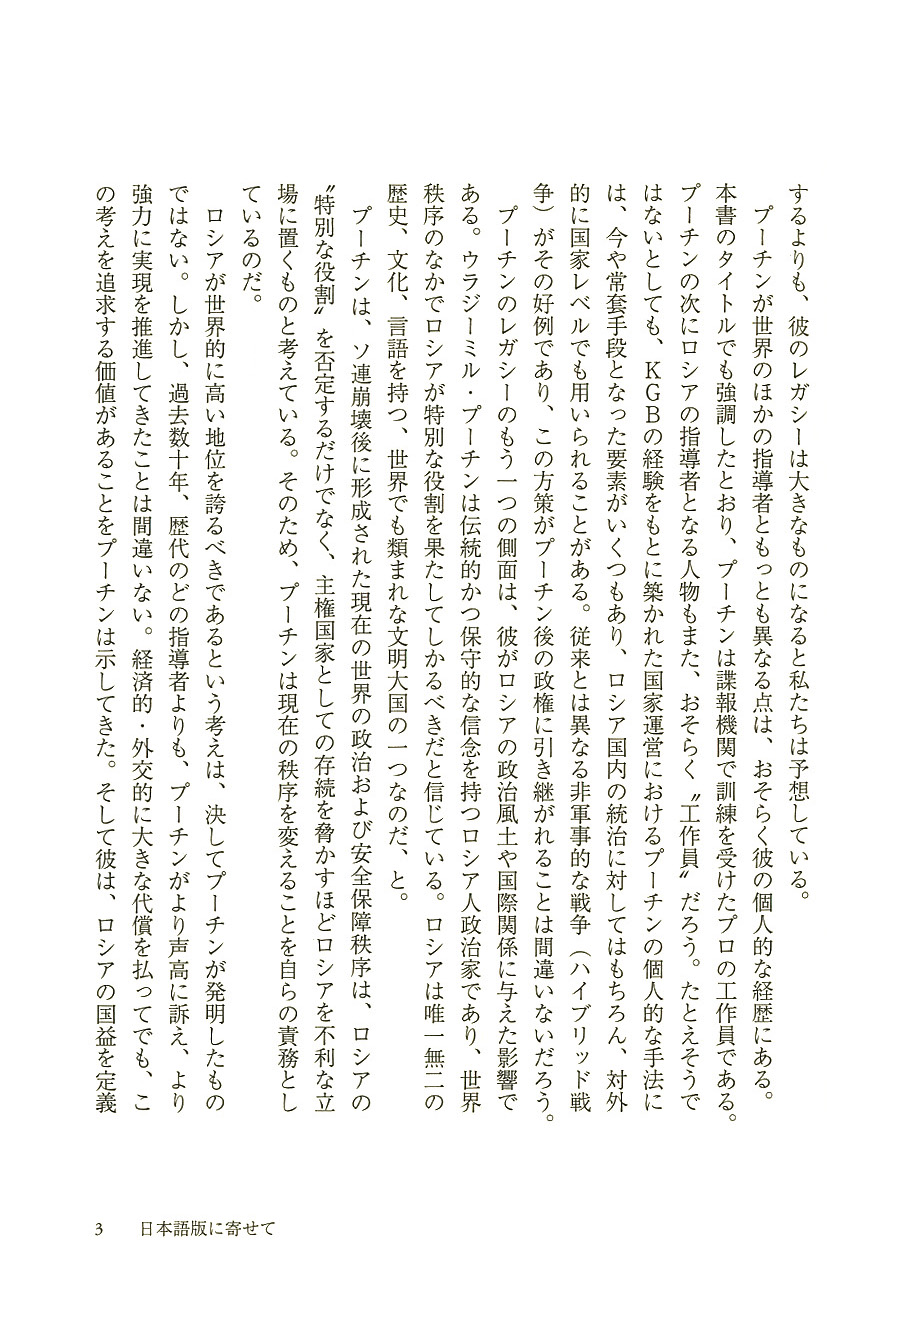 するよりも、彼のレガシーは大きなものになると私たちは予想している。
　プーチンが世界のほかの指導者ともっとも異なる点は、おそらく彼の個人的な経歴にある。
本書のタイトルでも強調したとおり、プーチンは諜報機関で訓練を受けたプロの工作員である。
プーチンの次にロシアの指導者となる人物もまた、おそらく〝工作員〟だろう。たとえそうで
はないとしても、KGBの経験をもとに築かれた国家運営におけるプーチンの個人的な手法に
は、今や常套手段となった要素がいくつもあり、ロシア国内の統治に対してはもちろん、対外
的に国家レベルでも用いられることがある。従来とは異なる非軍事的な戦争（ハイブリッド戦
争）がその好例であり、この方策がプーチン後の政権に引き継がれることは間違いないだろう。
　プーチンのレガシーのもう一つの側面は、彼がロシアの政治風土や国際関係に与えた影響で
ある。ウラジーミル・プーチンは伝統的かつ保守的な信念を持つロシア人政治家であり、世界
秩序のなかでロシアが特別な役割を果たしてしかるべきだと信じている。ロシアは唯一無二の
歴史、文化、言語を持つ、世界でも類まれな文明大国の一つなのだ、と。
　プーチンは、ソ連崩壊後に形成された現在の世界の政治および安全保障秩序は、ロシアの
〝特別な役割〟を否定するだけでなく、主権国家としての存続を脅かすほどロシアを不利な立
場に置くものと考えている。そのため、プーチンは現在の秩序を変えることを自らの責務とし
ているのだ。
　ロシアが世界的に高い地位を誇るべきであるという考えは、決してプーチンが発明したもの
ではない。しかし、過去数十年、歴代のどの指導者よりも、プーチンがより声高に訴え、より
強力に実現を推進してきたことは間違いない。経済的・外交的に大きな代償を払ってでも、こ
の考えを追求する価値があることをプーチンは示してきた。そして彼は、ロシアの国益を定義
3　日本語版に寄せて